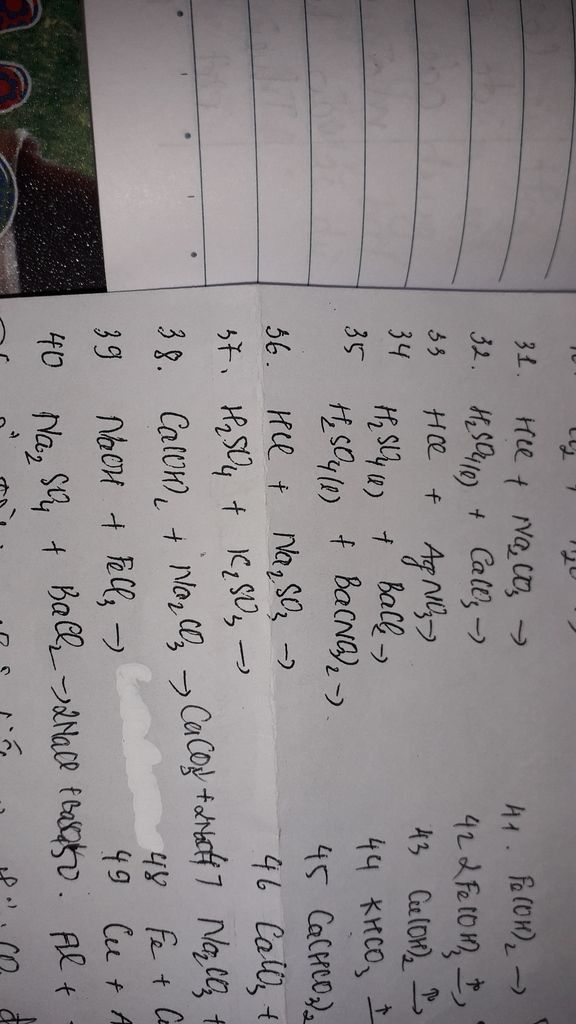 31. HCl + Na2CO3 →
32. H2SO4(l) + CaCO3 →
33 HCl + AgNO3 →
34 H2SO4(l) + BaCl2 →
35 H2SO4(l) + Ba(NO3)2 →
36. HCl + Na2SO3 →
37. H2SO4 + K2SO3 →
38. Ca(OH)2 + Na2CO3 → CaCO3↓ + 2NaOH
39 NaOH + FeCl3 →
40 Na2SO4 + BaCl2 → 2NaCl + BaSO4
41. Fe(OH)2 →
42 2Fe(OH)3 →
43 Cu(OH)2 →
44 KHCO3
45 Ca(HCO3)2
46 CaCO3 +
Na2CO3 +
48 Fe +
49 Cu +
Al +